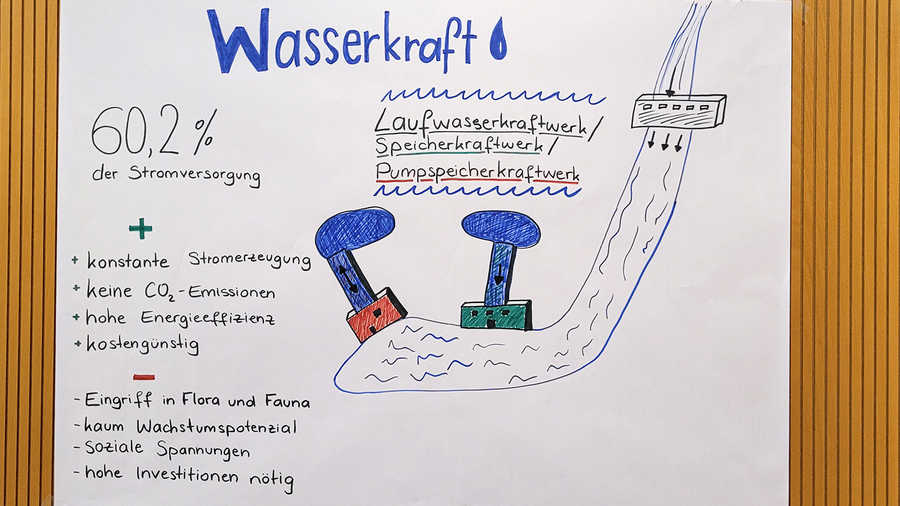 Wasserkraft
60,2%
der Stromversorgung
Laufwasserkraftwerk/
Speicherkraftwerk/
Pumpspeicherkraftwerk
+
+ konstante Stromerzeugung
+ keine CO₂-Emissionen
+ hohe Energieeffizienz
+ kostengünstig
-
- Eingriff in Flora und Fauna
- kaum Wachstumspotenzial
- soziale Spannungen
- hohe Investitionen nötig